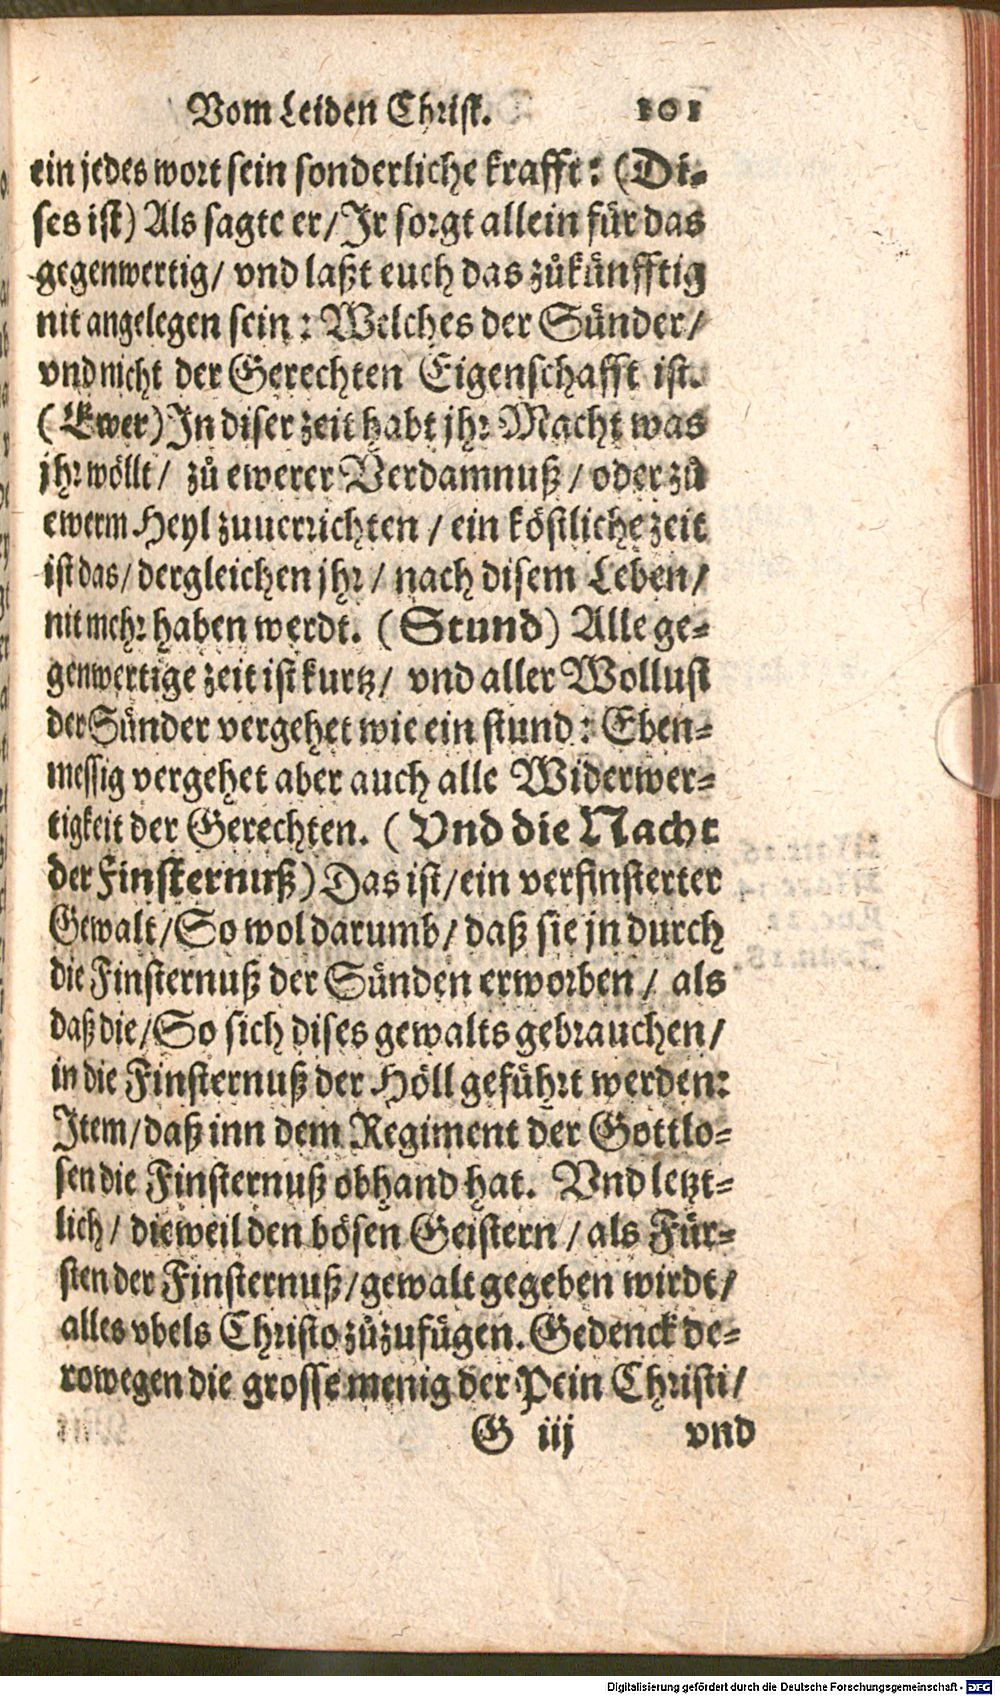 Vom Leiden Christ. 101
ein jedes wort sein sonderliche krafft: (Di-
ses ist) Als sagte er/ Jr sorgt allein für das
gegenwertig/ vnd laßt euch das zůkünfftig
nit angelegen sein: Welches der Sünder/
vnd nicht der Gerechten Eigenschafft ist.
(Ewer) In diser zeit habt jhr Macht was
jhr wöllt/ zů ewerer Verdamnuß/ oder zů
ewerm Heyl zuuerrichten/ ein köstliche zeit
ist das/ dergleichen jhr/ nach disem Leben/
nit mehr haben werdt. (Stund) Alle ge-
genwertige zeit ist kurtz/ vnd aller Wollust
der Sünder vergehet wie ein stund: Eben-
messig vergehet aber auch alle Widerwer-
tigkeit der Gerechten. (Vnd die Nacht
der Finsternuß) Das ist/ ein verfinsterter
Gewalt/ So wol darumb/ daß sie jn durch
die Finsternuß der Sünden erworben/ als
daß die/ So sich dises gewalts gebrauchen/
in die Finsternuß der Höll geführt werden:
Item/ daß inn dem Regiment der Gottlo-
sen die Finsternuß obhand hat. Vnd letzt-
lich/ dieweil den bösen Geistern/ als Für-
sten der Finsternuß/ gewalt gegeben wirdt/
alles vbels Christo zůzufügen. Gedenck de-
rowegen die grosse menig der Pein Christi/
G iij vnd
Digitalisierung gefördert durch die Deutsche Forschungsgemeinschaft - DFG